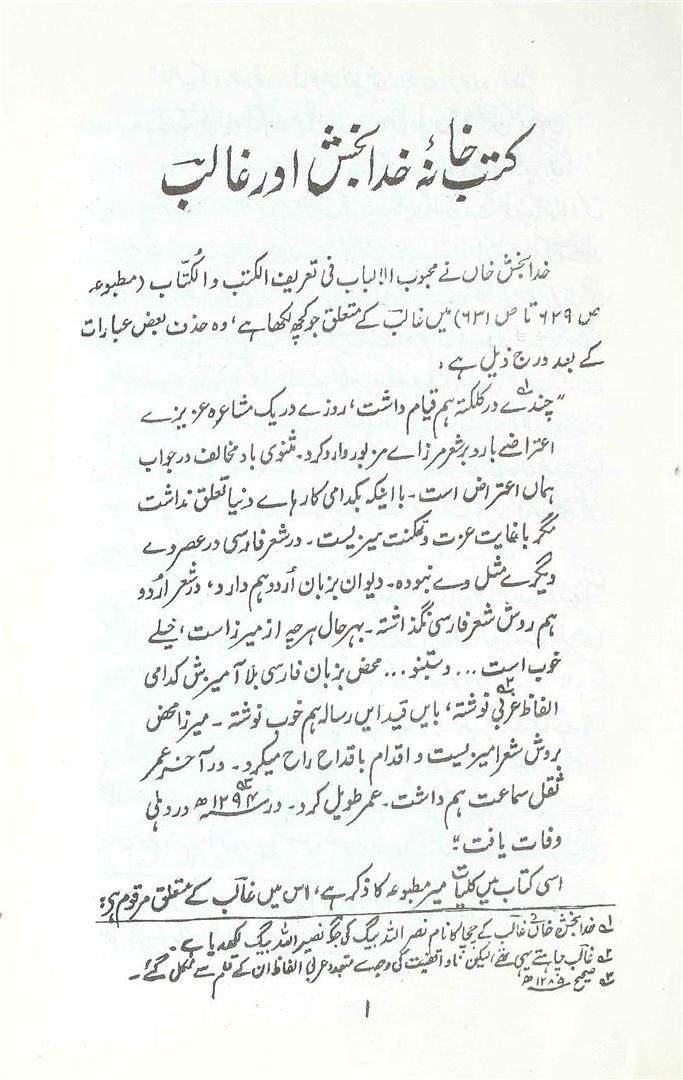 کتب خانۂ خدا بخش اور غالب
خدا بخش خاں نے محبوب الالباب فی تعریف الکتب و الکُتّاب (مطبوعہ
ص ۶۲۹ تا ص ۶۳۱) میں غالبؔ کے متعلق جو کچھ لکھا ہے، وہ حذف بعض عبارات
کے بعد درج ذیل ہے:
"چندے۱؎ در کلکتہ ہم قیام داشت، روزے در یک مشاعرہ عزیزے
اعتراضے بارد بر شعر مرزاے مزبور وارد کرد۔ مثنوی باد مخالف در جواب
ہماں اعتراض است۔ با اینکہ بکدامی کارہاے دنیا تعلق نداشت
مگر با غایت عزت و تمکنت میزیست۔ در شعر فارسی در عصر وے
دیگرے مثل وے نبودہ۔ دیوان بزبان اُردو ہم دارد، در شعر اُردو
ہم روش شعر فارسی نگذاشتہ۔ بہر حال ہرچہ از میرزا ست، خیلے
خوب است ... دستنبو ... محض بزبان فارسی بلا آمیزش کدامی
الفاظ عربی۲؎ نوشتہ، بایں قید ایں رسالہ ہم خوب نوشتہ۔ میرزا محض
بروش شعرا میزیست و اقدام باقداح راح میکرد۔ در آخر عمر
ثقل سماعت ہم داشت۔ عمر طویل کرد۔ در ۱۲۹۴ھ۳؎ در دہلی
وفات یافت"۔
اسی کتاب میں کلیات میر مطبوعہ کا ذکر ہے، اس میں غالبؔ کے متعلق مرقوم ہے:
۱؎ خدا بخش خاں نے غالبؔ کے چچا کا نام نصر اللہ بیگ کی جگہ نصیر اللہ بیگ لکھ دیا ہے۔
۲؎ غالبؔ چاہتے یہی تھے لیکن ناواقفیت کی وجہ سے متعدد عربی الفاظ ان کے قلم سے نکل گئے۔
۳؎ صحیح ۱۲۸۵ھ
۱